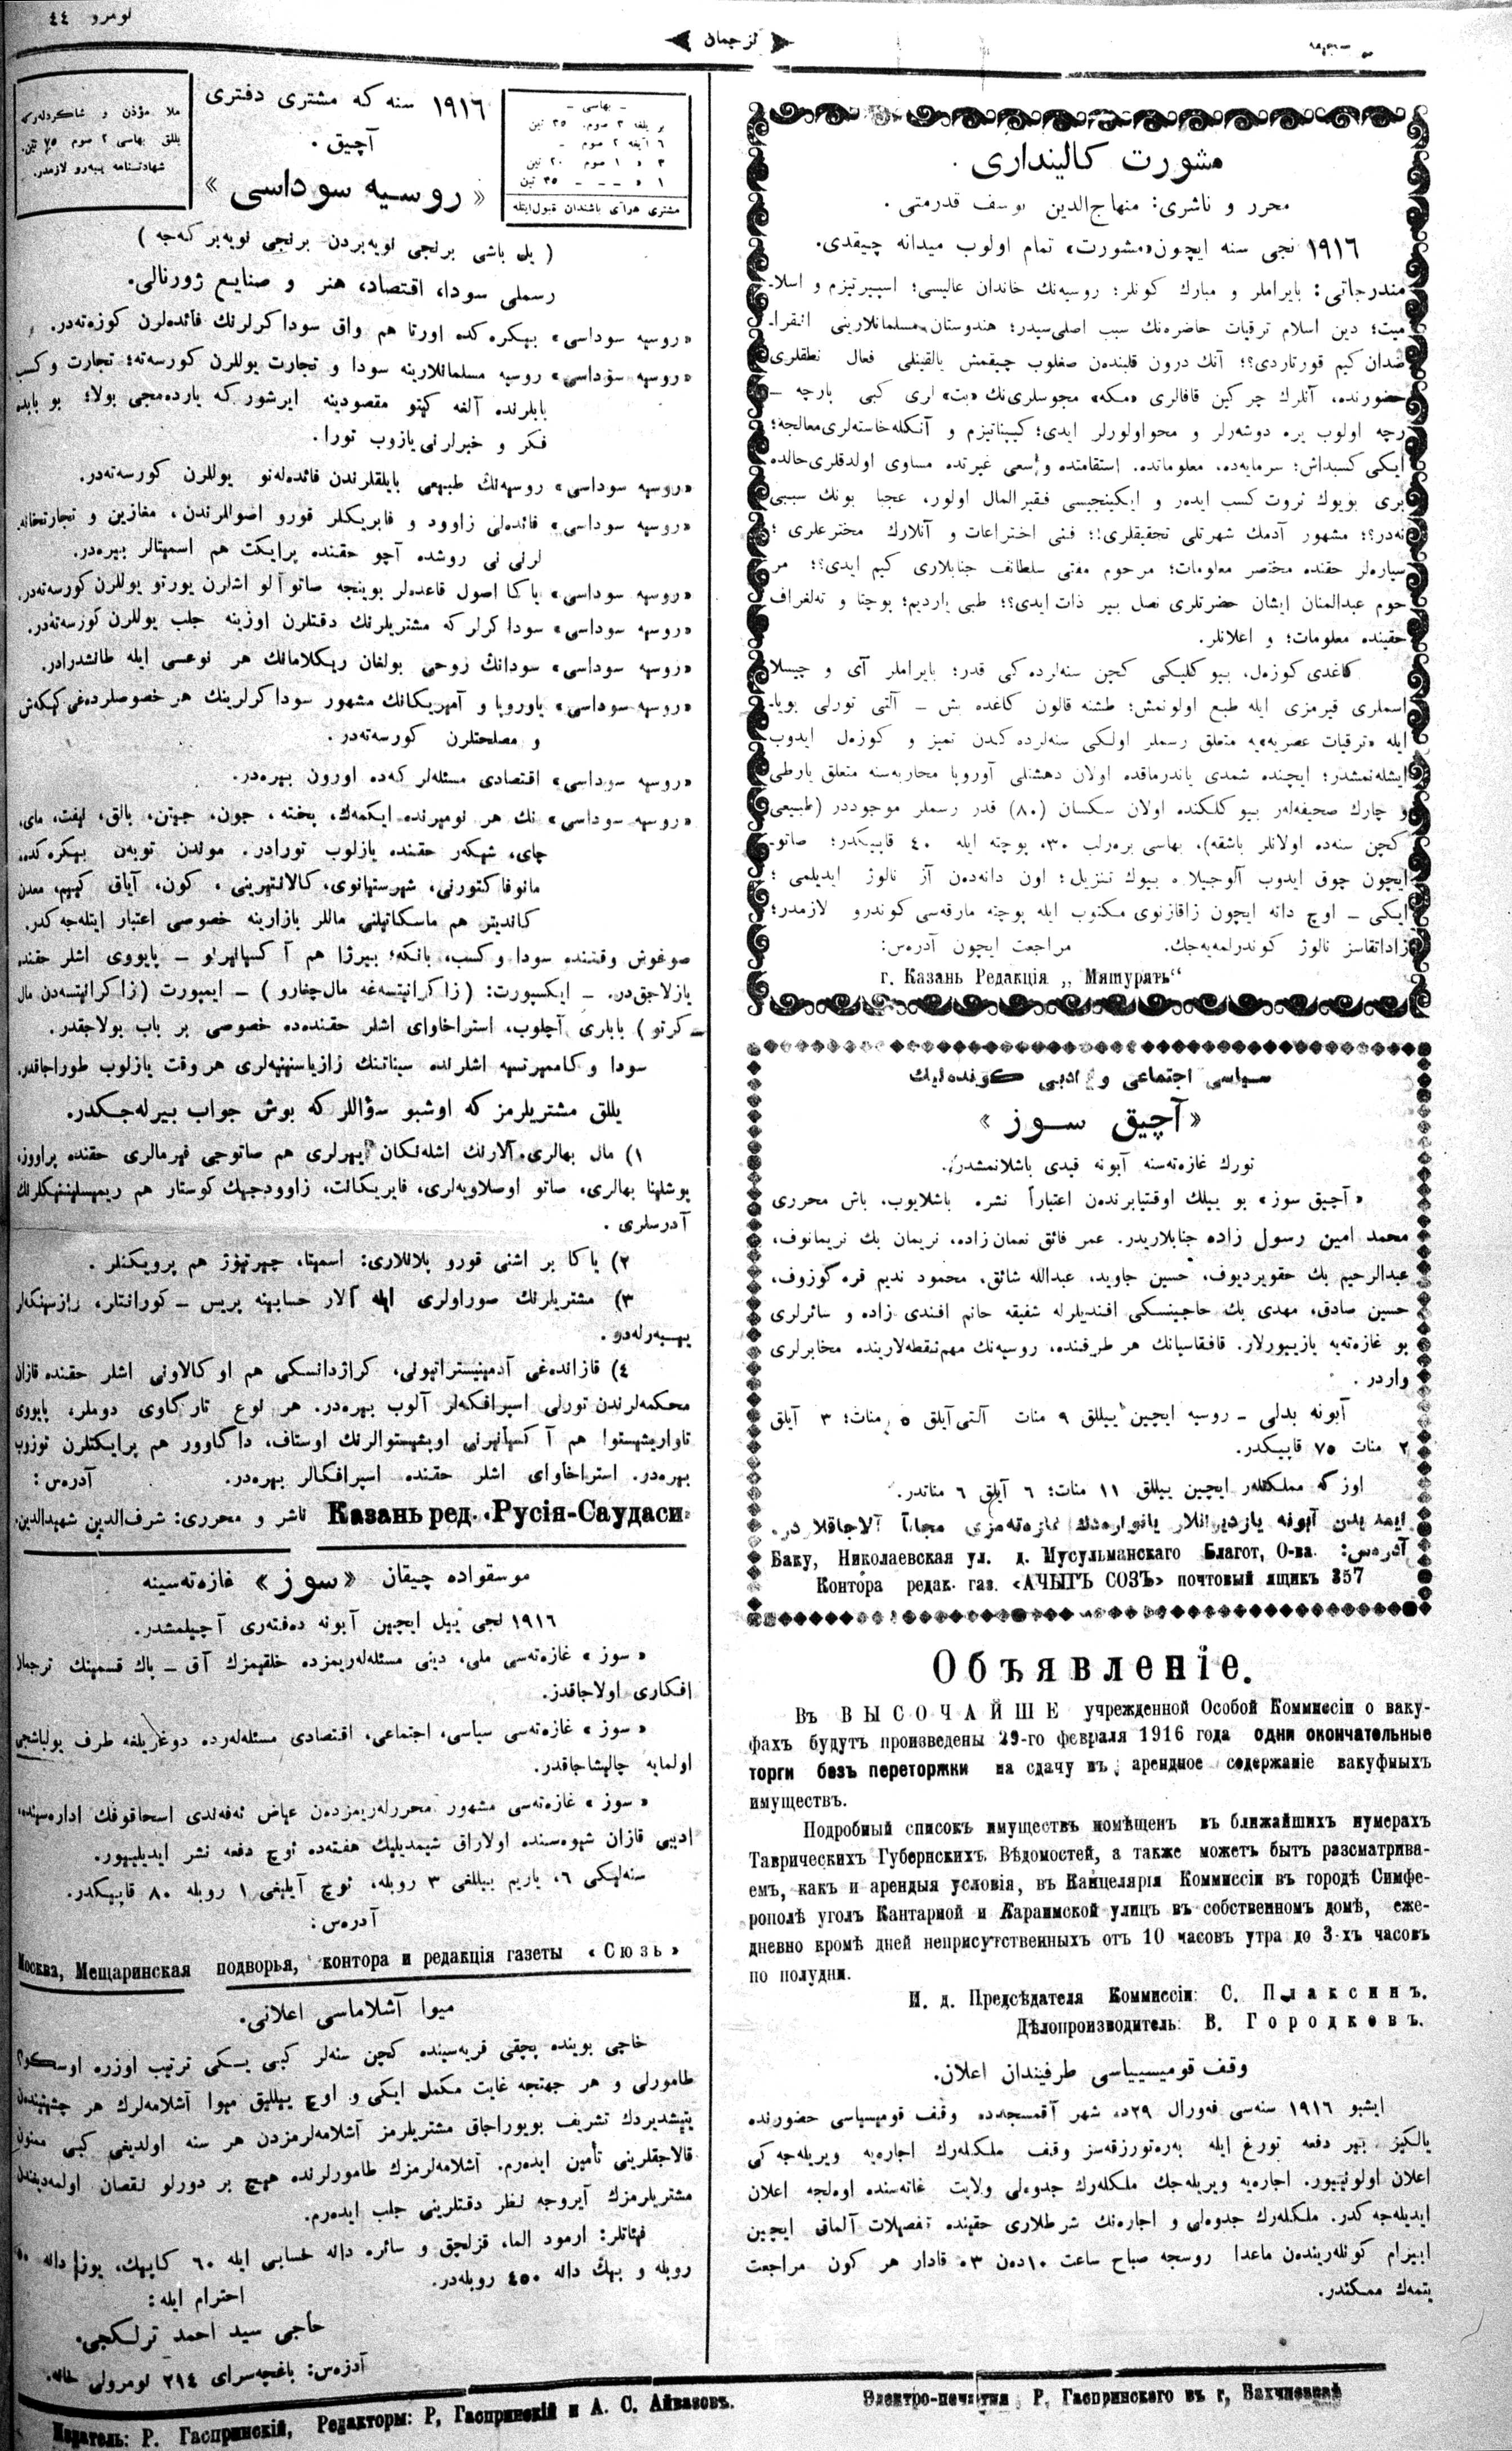 نومرو ٤٤
ترجمان
مشورت كالينداری
محرر و ناشری: منهاج‌الدين يوسف قدرمتی .
١٩١٦ نجی سنه ايچون «مشورت» تمام اولوب ميدانه چيقدی.
مندرجاتی: بايراملر و مبارك كونلر؛ روسيه‌نك خاندان عاليسی؛ اسپيرتيزم و اسلا-
ميت؛ دين اسلام ترقيات حاضره‌نك سبب اصلی‌سيدر؛ هندوستان مسلمانلارينی انقرا-
ضدان كيم قورتاردی؟؛ آنك درون قلبندن
حضورنده، آنلرك چركين قافالری «مكه» مجوسلری‌نك «بت» لری كبی پارچه –
ايكی كسبداش؛ سرمايه‌ده، معلوماتده، استقامتده و سعی غيرتده مساوی اولدقلری حالده
بری بويوك ثروت كسب ايده‌ر و ايكينجيسی فقيرالمال اولور، عجبا بونك سببی
نه‌در؟؛ مشهور آدمك شهرتلی تحقيقلری!؛ فنی اختراعات و آنلارك مخترعلری ؛
سياره‌لر حقنده مختصر معلومات؛ مرحوم مفتی سلطانف جنابلاری كيم ايدی؟؛ مر
حوم عبدالمنان ايشان حضرتلری نصل بير ذات ايدی؟؛ طبی يارديم؛ پوچتا و ته‌لغراف
حقينده معلومات؛ و اعلانلر.
كاغدی كوزه‌ل، بيوكليكی كچن سنه‌لرده‌كی قدر؛ بايراملر آی و چيسلا
اسملری قيرمزی ايله طبع اولونمش؛ طشنه قالون كاغده بش – آلتی تورلی بويا-
ايله «ترقيات عصريه»يه متعلق رسملر اولكی سنه‌لرده‌كدن تميز و كوزه‌ل ايدوب
ايشله‌نمشدر؛ ايچنده شمدی ياندرماقده اولان دهشتلی آوروپا محاربه‌سنه متعلق يارطی
و چارك صحيفه‌لر بيوكلكنده اولان سكسان (٨٠) قدر رسملر موجوددر (طبيعی
كچن سنه‌ده اولانلر باشقه)، بهاسی بره‌رلب ٣٠، پوچته ايله ٤٠ قاپيكدر؛ صاتو-
ايچون چوق ايدوب آلوجيلا ه بيوك تنزيل؛ اون دانه‌دن آز نالوژ ايديلمی ؛
ايكی – اوچ دانه ايچون زاقازنوی مكتوب ايله پوچته مارقه‌سی كوندرو لازمدر؛
زاداتقاسز نالوژ كوندرلمه‌يه‌جك. مراجعت ايچون آدره‌س:
г. Казань Редакція „ Мяшурятъ“
سياسی اجتماعی و ادبی كونده‌ليك
«آچيق سوز»
تورك غازه‌ته‌سنه آبونه قيدی باشلانمشدر.
«آچيق سوز» بو ييلك اوقتيابرندن اعتباراً نشره باشلايوب، باش محرری
محمد امين رسول زاده جنابلاريدر. عمر فائق نعمان‌زاده، نريمان بك نريمانوف،
عبدالرحيم بك حقويرديوف، حسين جاويد، عبدالله شائق، محمود نديم قره‌گوزوف،
حسين صادق، مهدی بك حاجينسكی افنديلرله شفيقه خانم افندی زاده و سائرلری
بو غازه‌ته‌يه يازييورلار. قافقاسيانك هر طرفنده، روسيه‌نك مهم نقطه‌لارينده مخابرلری
واردر .
آبونه بدلی – روسيه ايچين ييللق ٩ منات آلتی آيلق ٥ منات؛ ٣ آيلق
٢ منات ٧٥ قاپيكدر.
اوزكه مملكتلر ايچين ييللق ١١ منات؛ ٦ آيلق ٦ مناتدر.
ايمديدن آبونه يازديرانلار غازه‌ته‌مزی مجاناً آلاجاقلاردر.
آدره‌س: Баку, Николаевская ул. д. Мусульманскаго Благот, О-ва.
Контора редак. газ. «АЧЫГЪ СОЗЪ» почтовый ящик 357
Объявленіе.
Въ ВЫСОЧАЙШЕ учрежденной Особой Коммиссіи о ваку-
фахъ будутъ произведены 29-го февраля 1916 года одни окончательные
торги безъ переторжки на сдачу въ арендное содержаніе вакуфныхъ
имуществъ.
Подробный списокъ имуществъ помѣщенъ въ ближайшихъ нумерахъ
Таврическихъ Губернскихъ Вѣдомостей, а также можетъ быть разсматрива-
емъ, какъ и арендыя условія, въ Канцеляріи Коммиссіи въ городѣ Симфе-
рополѣ уголъ Кантарной и Караимской улицъ въ собственномъ домѣ, еже-
дневно кромѣ дней неприсутственныхъ отъ 10 часовъ утра до 3-хъ часовъ
по полудни.
И. д. Предсѣдателя Коммиссіи: С. Плаксинъ.
Дѣлопроизводитель: В. Городковъ.
وقف قوميسيياسی طرفيندان اعلان.
ايشبو ١٩١٦ سنه‌سی فه‌ورال ٢٩ده شهر آقمسجدده وقف قوميسياسی حضورنده
يالكيز بير دفعه تورغ ايله په‌ره‌تورژقه‌سز وقف ملكله‌رك اجاره‌يه ويريله‌جه‌كی
اعلان اولونييور. اجاره‌يه ويريله‌جك ملكله‌رك جدوه‌لی ولايت غاته‌سنده اوه‌لجه اعلان
ايديله‌جه‌كدر. ملكله‌رك جدوه‌لی و اجاره‌نك شرطلاری حقينده تفصيلات آلماق ايچين
ساعت ١٠دن ٣ه قادار هر كون مراجعت
يتمه‌ك ممكندر.
– بهاسی –
بر يلغه ٣ صوم. ٣٥ تين
٦ آيغه ٢ صوم –
٣ » ١ صوم ٢٠ تين
١ » – – – ٣٥ تين
مشتری هرآی باشندان قبول‌ايتله
١٩١٦ سنه‌كه مشتری دفتری
آچيق .
«روسيه سوداسی»
ملا مؤذن و شاكردله‌ركه
يللق بهاسی ٢ صوم ٧٥ تين.
شهادتنامه ييبه‌رو لازمدر.
( يل باشی برنجی نويه‌بردن برنجی نويه‌بر كه‌جه )
رسملی سودا، اقتصاد، هنر و صنايع ژورنالی.
«روسيه سوداسی» بيكره‌كده اورتا هم واق سوداكرلرنك فائده‌لرن كوزه‌ته‌در.
«روسيه سوداسی» روسيه مسلمانلارينه سودا و تجارت يوللرن كورسه‌ته؛ تجارت و كسب
بابلرنده آلغه كيتو مقصودينه ايرشوركه يارده‌مجی بولا؛ بو بابده
فكر و خبرلرنی يازوب تورا.
«روسيه سوداسی» روسيه‌نڭ طبيعی بايلقلرندن فائده‌له‌نو يوللرن كورسه‌ته‌در.
«روسيه سوداسی» فائده‌لی زاوود و فابريكلر قورو اصوللرندن، مغازين و تجارتخانه
لرنی نی روشده آچو حقنده پرايكت هم اسميتالر بيره‌در.
«روسيه سوداسی» ياكا اصول قاعده‌لر بوينچه صاتو آلو اشلرن يورتو يوللرن كورسه‌ته‌در.
«روسيه سوداسی» سوداكرلركه مشتريلرنك دقتلرن اوزينه جلب يوللرن كورسه‌ته‌در.
«روسيه سوداسی» سودانڭ روحی بولغان ريكلامانك هر نوعسی ايله طانشدرادر.
«روسيه سوداسی» ياوروپا و آمريكانك مشهور سوداكرلرينك هر خصوصلرده‌غی كيكه‌ش
و مصلحتلرن كورسه‌ته‌در .
«روسيه سوداسی» اقتصادی مسئله‌لركه‌ده اورون بيره‌در.
«روسيه سوداسی» نك هر نوميرنده ايكمه‌ك، پخته، جون، جيتن، بالق، نيفت، مای،
چای، شيكه‌ر حقنده يازلوب تورادر. موندن
كانديتر هم ماسكاتيلنی ماللر بازارينه خصوصی اعتبار ايتله‌جه‌كدر.
صوغوش وقتنده سودا و كسب، بانكه؛ بيرژا هم آكسيانيرلو – پايووی اشلر حقنده
يازلاجقدر. – ايكسپورت: (زاكرانيتسه‌غه مال‌چغارو ) – ايمپورت (زاكرانيتسه‌دن مال
كرتو ) بابلری آچلوب، استراخاوای اشلر حقنده‌ده خصوصی بر باب بولاجقدر.
سودا و كاممرتسيه اشلرنده سيناتنك رازياسنينيه‌لری هروقت يازلوب طوراجاقدر.
يللق مشتريلرمزكه اوشبو سؤاللركه بوش جواب بيرله‌جكدر.
١) مال بهالری. آلارنك اشله‌نكان ييرلری هم صاتوجی فيرمالری حقنده پراووز،
پوشلينا بهالری، صاتو اوصلاويه‌لری، فابريكانت، زاوودجيك كوستار هم ريميسلينيكلرنك
آدرسلری .
٢) ياكا بر اشنی قورو پلانلاری: اسميتا، چيرتيوژ هم پرويكتلر .
٣) مشتريلرنك صوراولری ايله آلار حسابينه پريس – كورانتلر،
ييبه‌رله‌در .
٤) قازانده‌غی آدمينيستراتيونی، كراژدانسكی هم اوكالاونی اشلر حقنده قازان
محكمه‌لرندن تورلی اسپرافكه‌لر آلوب بيره‌در. هر نوع تارگاوی دوملر، پايووی
بيره‌در. استراخاوای اشلر حقنده اسپرافكالر بيره‌در. آدره‌س:
Казань ред. «Русія-Саудаси» ناشر و محرری: شرف‌الدين شهيدالدين.
موسقواده چيقان «سوز» غازه‌ته‌سينه
١٩١٦ نجی ييل ايچين آبونه ده‌فته‌ری آچيلمشدر.
«سوز» غازه‌ته‌سی ملی، دينی مسئله‌له‌ريمزده خلقيمزك آق – پاك قسمينك ترجمان
افكاری اولاجاقدر.
«سوز» غازه‌ته‌سی سياسی، اجتماعی، اقتصادی مسئله‌له‌رده دوغاريلغه طرف يولباشجی
اولمايه چاليشاجاقدر.
«سوز» غازه‌ته‌سی مشهور محررله‌ريمزده‌ن عياض ئه‌فه‌ندی اسحاقوفك اداره‌سينده،
ادبی قازان شيوه‌سنده اولاراق شيمديليك هفته‌ده ئوچ دفعه نشر ايديلييور.
سنه‌ليكی ٦، ياريم ييللغی ٣ روبله، ئوچ آيليغی ١ روبله ٨٠ قاپيكدر.
آدره‌س:
Москва, Мещаринская подворья, контора и редакція газеты «Сюзь»
ميوا آشلاماسی اعلانی.
خاجی بوينده قريه‌سينده كچن سنه‌لر كبی ترتيب اوزره
طامورلی و هر جهتجه غايت مكمل ايكی و اوچ ييلليق ميوا آشلامه‌لرك هر
يتيشديردك تشريف بويوراجاق مشتريلرمز آشلامه‌لرمزدن هر سنه اولديغی كبی ممنون
قالاجقلرينی تأمين ايده‌رم. آشلامه‌لرمزك طامورلرنده هيچ بر دورلو نقصان
مشتريلرمزك آيروجه نظر دقتلرينی جلب ايده‌رم.
فيئاتلر: ارمود الما، قزلجق و سائره دانه حسابی ايله ٦٠ كاپيك، يوز دانه ٥٠
روبله و بيك دانه ٤٥٠ روبله‌در.
احترام ايله:
حاجی سيد احمد ترلكجی.
آدره‌س: باغچه‌سرای ٢١٤ نومرولی خانه.
Издатель: Р. Гаспринскій, Редакторы: Р, Гаспринскій и А. С. Айвазовъ.
Электро-печатня Р. Гаспринскаго въ г, Бахчисараѣ